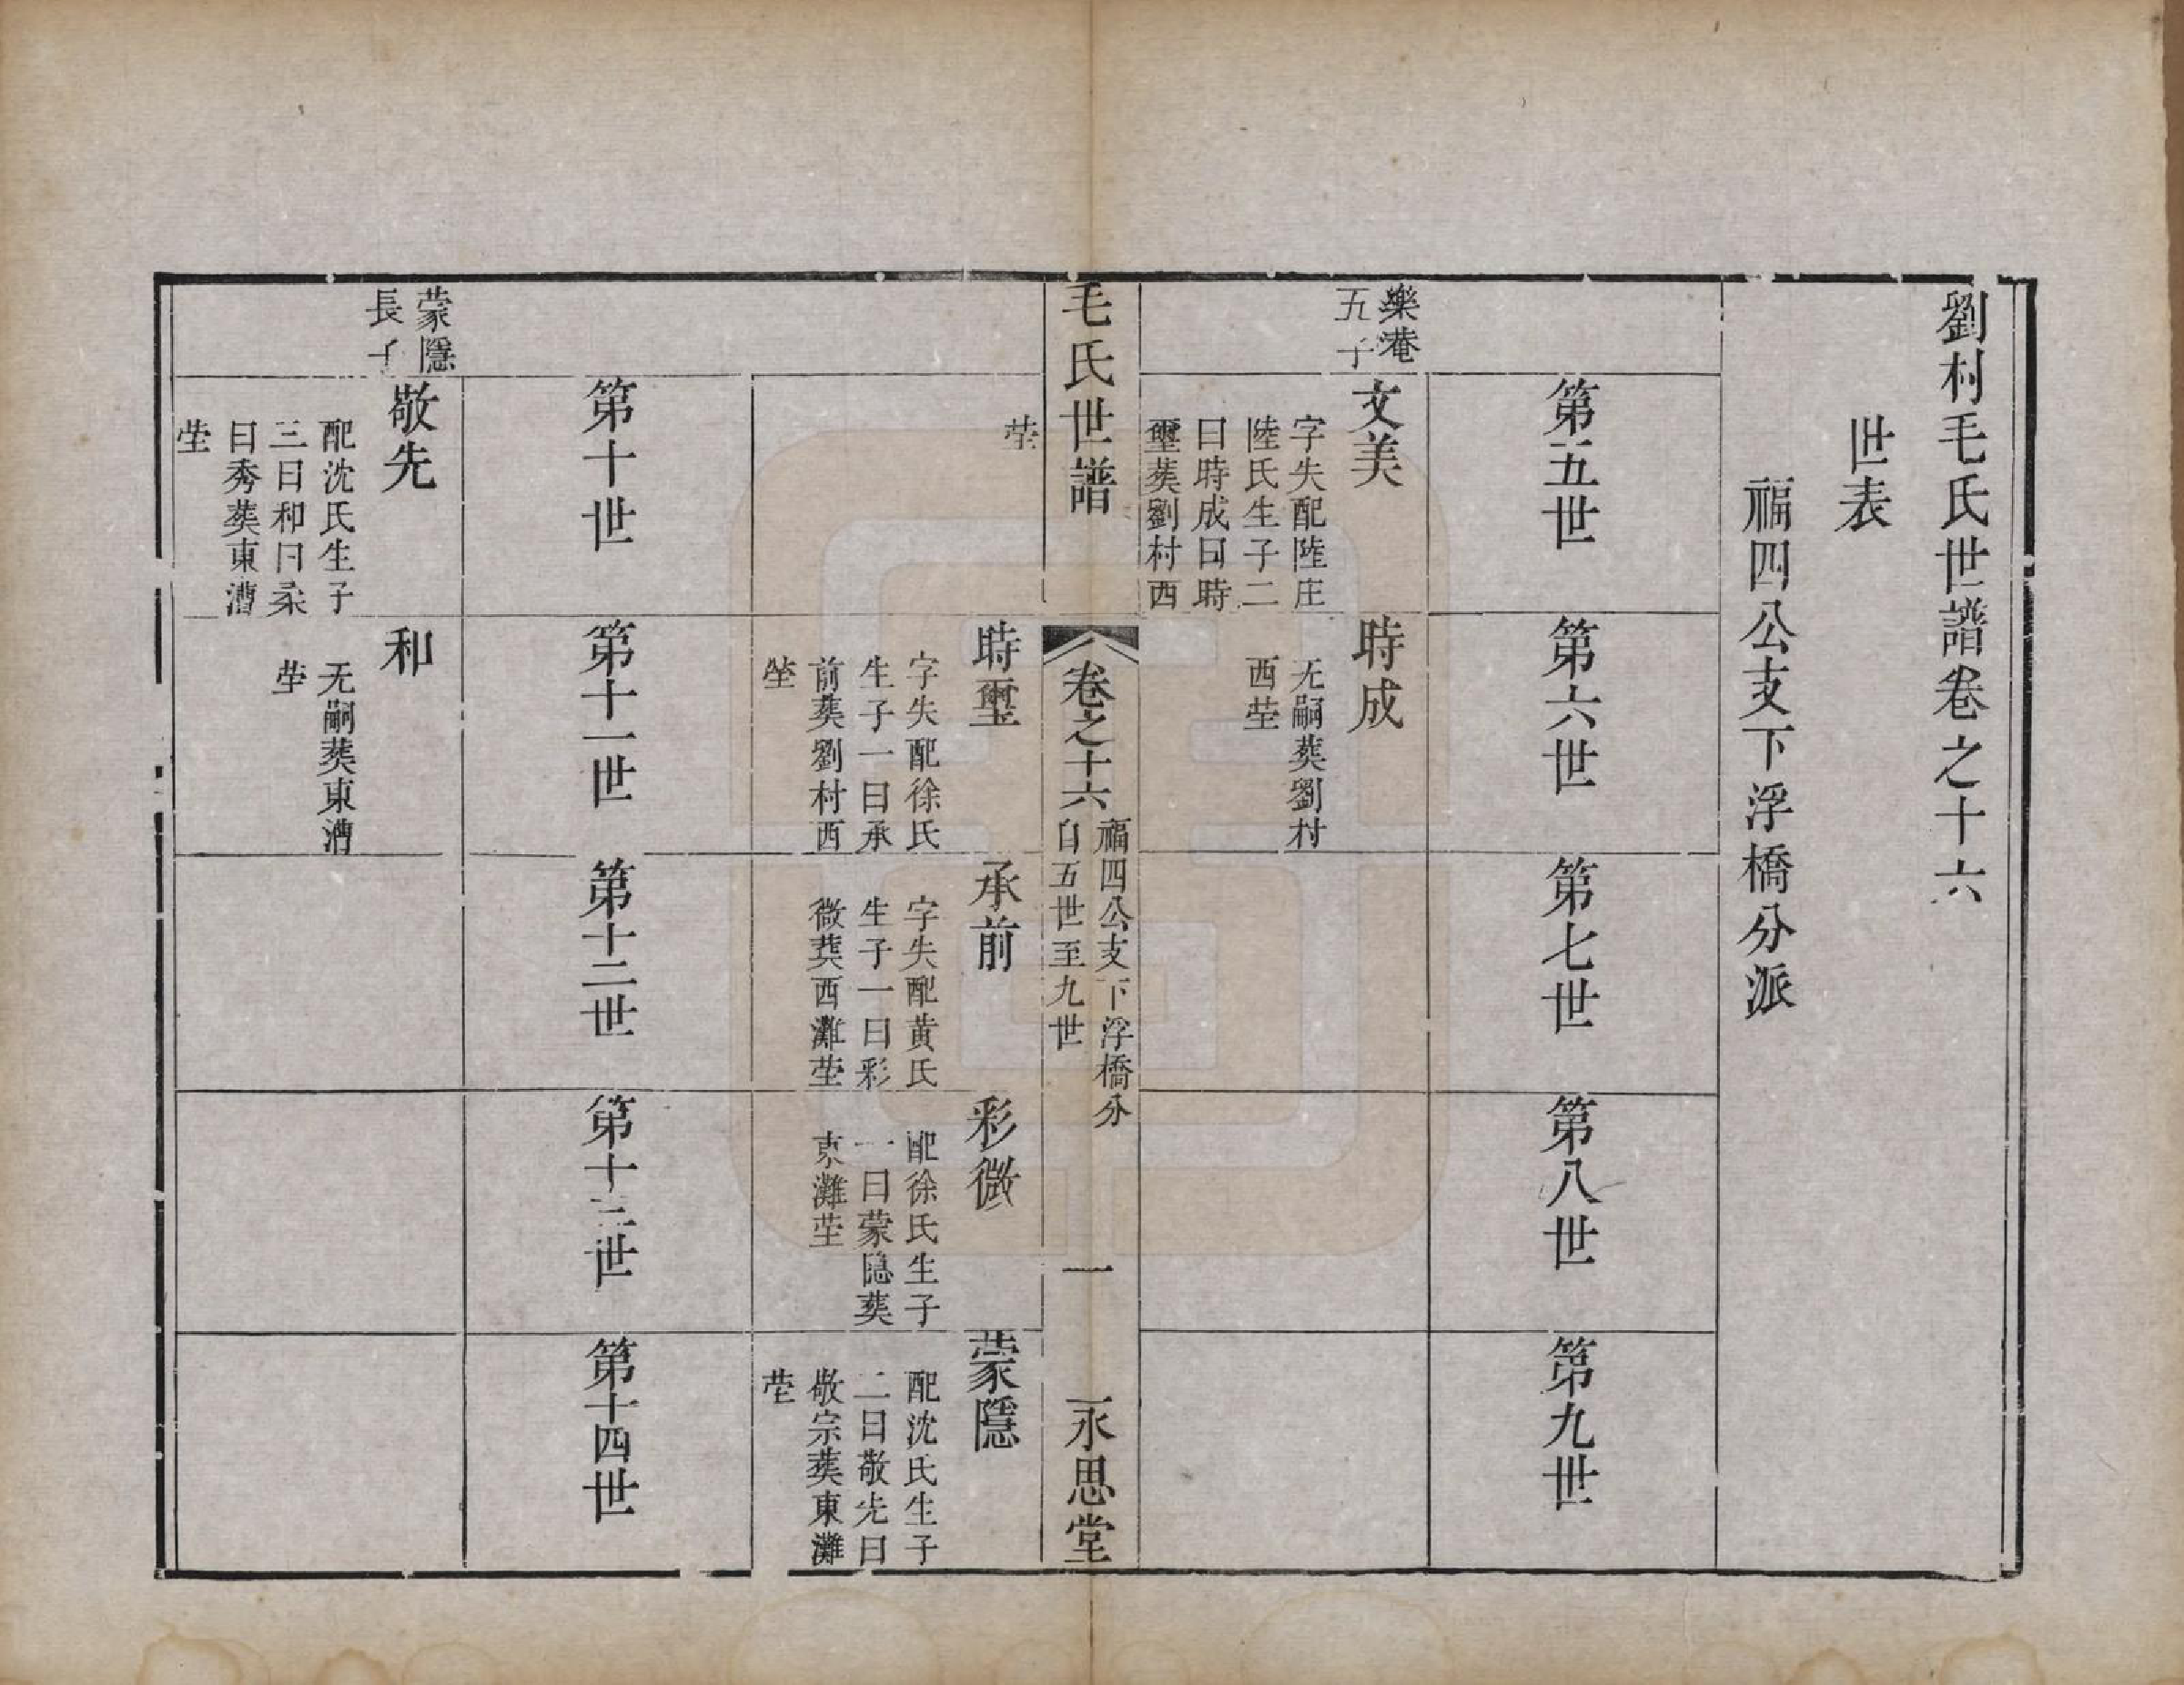 劉村毛氏世譜卷之十六
世表
福四公支下浮橋分派
第五世
第六世
第七世
第八世
第九世
樂菴
五子
文美
字失配陸庄
陸氏生子二
曰時成曰時
璽葬劉村西
塋
時成
无嗣葬劉村
西塋
毛氏世譜
卷之十六
福四公支下浮橋分
自五世至九世
一
永思堂
時璽
字失配徐氏
生子一曰承
前葬劉村西
塋
承前
字失配黄氏
生子一曰彩
微葬西灘塋
彩微
配徐氏生子
一曰蒙隱葬
東灘塋
蒙隱
配沈氏生子
二曰敬先曰
敬宗葬東灘
塋
第十世
第十一世
第十二世
第十三世
第十四世
蒙隱
長子
敬先
配沈氏生子
三曰和曰柔
曰秀葬東漕
塋
和
无嗣葬東漕
塋